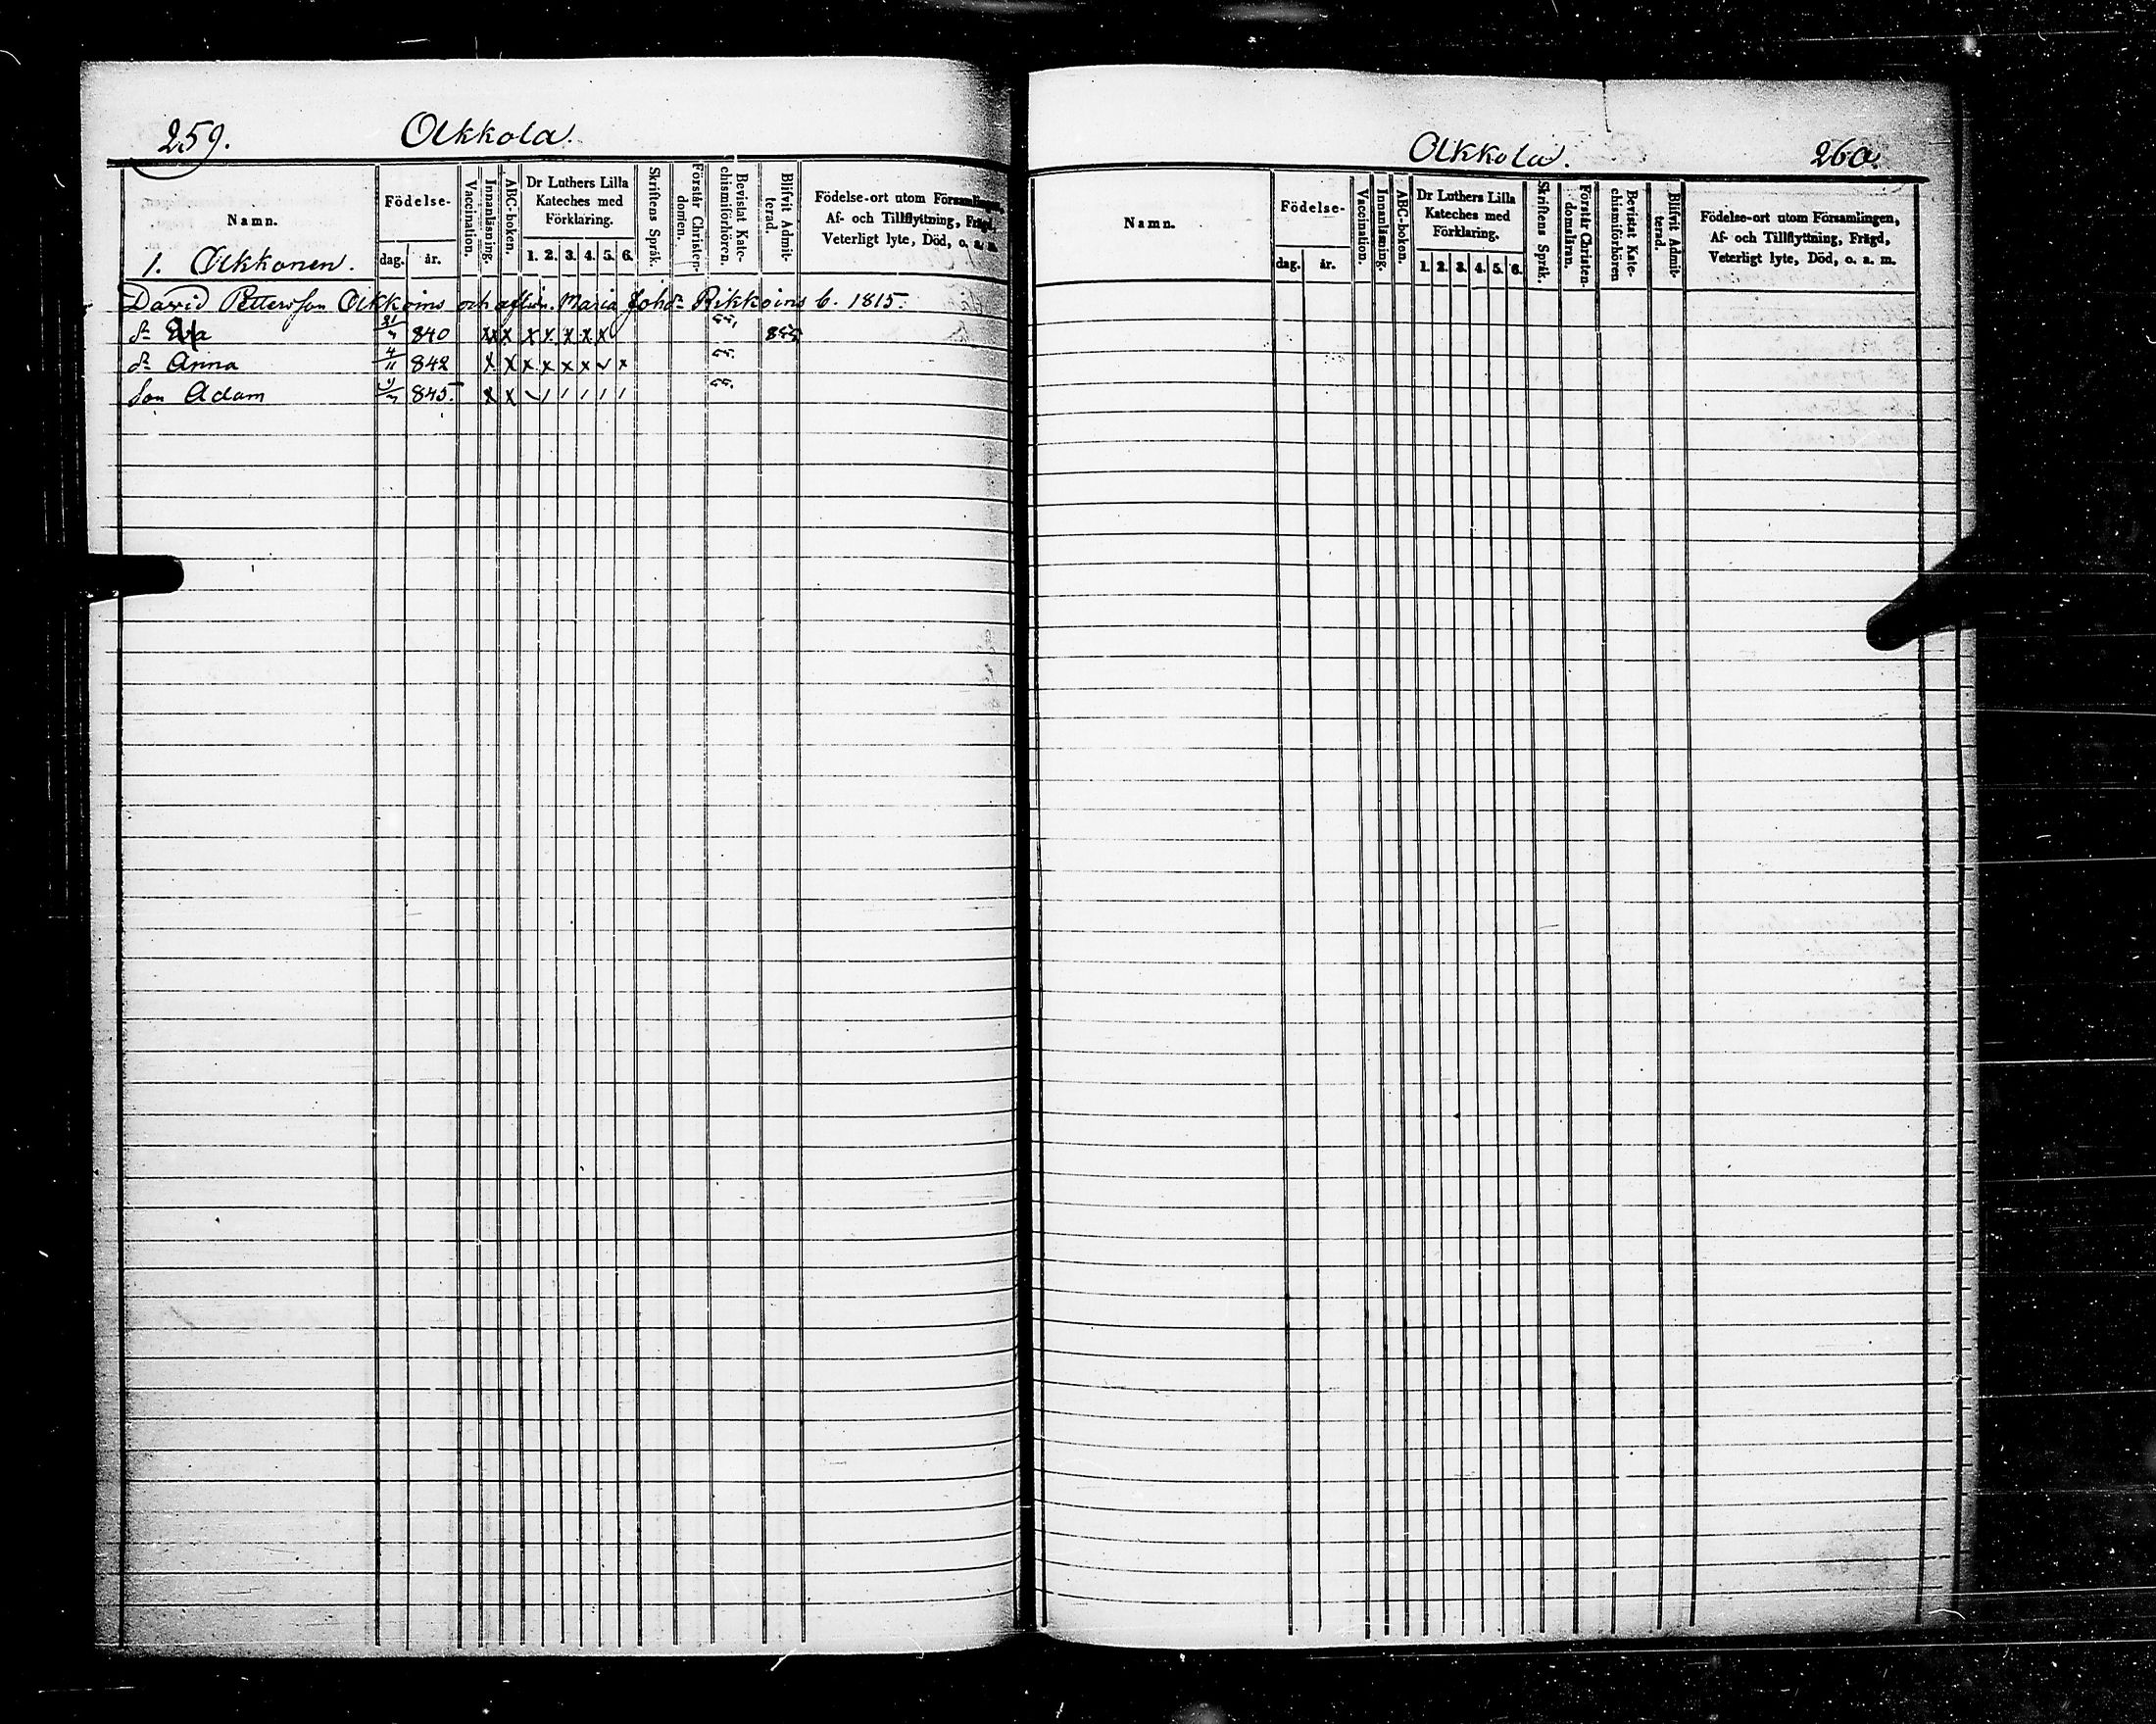 259. Olkkola.
Namn.
Födelse-
dag. år.
Vaccination.
Innanläsning.
ABC-boken.
Dr Luthers Lilla
Kateches med
Förklaring.
1. 2. 3. 4. 5. 6.
Skriftens Språk.
Förstår Christen-
domen.
Bevistat Kate-
chismiförhören.
Blifvit Admit-
terad.
Födelse-ort utom Församlingen,
Af- och Tillflyttning, Frägd,
Veterligt lyte, Död, o. a. m.
1. Olkkonen.
David Pettersson Olkkoins och Maria Joh.dr Rikkoins b. 1815.
dr Eva 840 x x x x x x x x 855
dr Anna 4/11 842 x x x x x x v x 55.
son Adam 845. x x
Olkkola. 260.
Namn.
Födelse-
dag. år.
Vaccination.
Innanläsning.
ABC-boken.
Dr Luthers Lilla
Kateches med
Förklaring.
1. 2. 3. 4. 5. 6.
Skriftens Språk.
Förstår Christen-
domsläran.
Bevistat Kate-
chismiförhören
Blifvit Admit-
terad.
Födelse-ort utom Församlingen,
Af- och Tillflyttning, Frägd,
Veterligt lyte, Död, o. a. m.